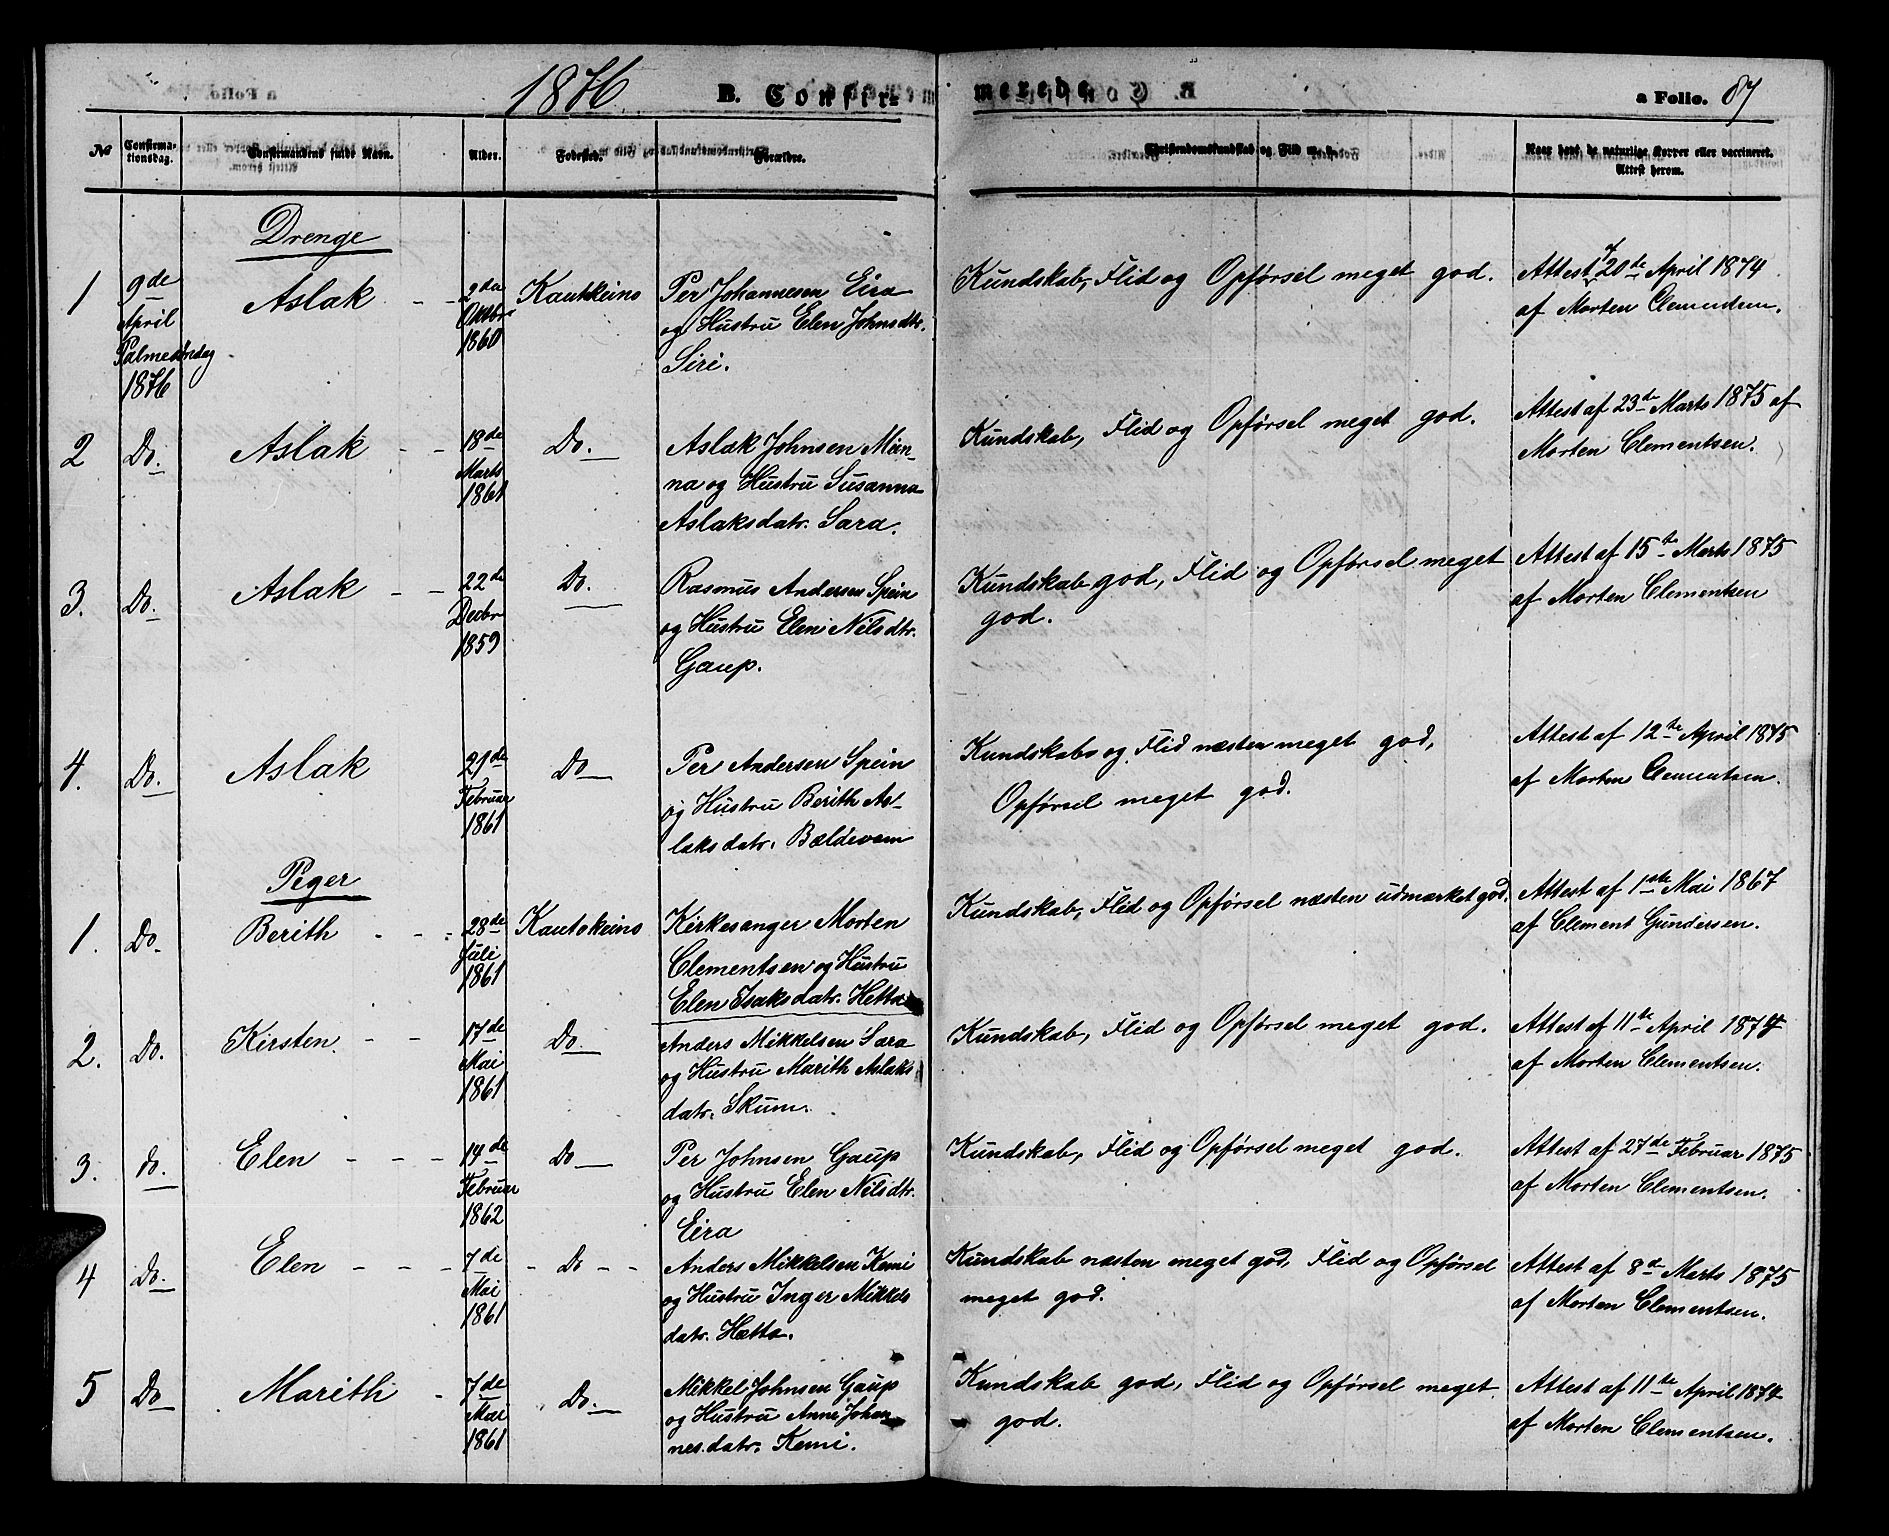 1876. B. Confir- merede. a Folio. 87
No Confirma-
tionsdag. Confirmandens fulde Navn. Alder. Fødested. Forældre. Christendomskundskab og Flid m. v. Naar havt de naturlige Kopper eller vaccineret.
Attest herom.
Drenge
1 9de
April
Palmesøndag
1876 Aslak - - 2den
Oktbr.
1860 Kautokeino Per Johannesen Eira
og Hustru Elen Johnsdtr.
Siri. Kundskab, Flid og Opførsel meget god. Attest 20de April 1874
af Morten Clementsen.
2 Do. Aslak - - 18de
Marts
1861 Do. Aslak Johnsen Mein-
na og Hustru Susanna
Aslaksdatr. Sara. Kundskab, Flid og Opførsel meget god. Attest af 23de Marts 1875 af
Morten Clementsen.
3. Do. Aslak - - 22de
Decbr
1859 Do. Rasmus Andersen Spein
og Hustru Elen Nilsdtr.
Gaup. Kundskab god, Flid og Opførsel meget
god. Attest af 15te Marts 1875
af Morten Clementsen
4. Do. Aslak 21de
Februar
1861 Do Per Andersen Spein
og Hustru Berith As-
laksdatr. Bældevam Kundskabs og Flid næsten meget god,
Opførsel meget god. Attest af 12te April 1875
af Morten Clementsen.
Piger
1. Do. Berith - - - 28de
Juli
1861 Kautokeino Kirkesanger Morten
Clementsen og Hustru
Elen Isaksdatr. Hetta Kundskab, Flid og Opførsel næsten udmærket god. Attest af 1ste Mai 1867
af Clement Gundersen.
2. Do. Kirsten. - - 17de
Mai
1861 Do. Anders Mikkelsen Sara
og Hustru Marith Aslaks
datr. Skum. Kundskab, Flid og Opførsel meget god. Attest af 11te April 1874
af Morten Clementsen.
3. Do. Elen - - - 14de
Februar
1862 Do Per Johnsen Gaup
og Hustru Elen Nilsdtr.
Eira Kundskab, Flid og Opførsel meget god. Attest af 27de Februar 1875
af Morten Clementsen.
4 Do. Elen - - - 7de
Mai
1861 - Do - - Anders Mikkelsen Kemi
og Hustru Inger Mikkels
datr. Hætta. Kundskab næsten meget god, Flid og Opførsel
meget god. Attest af 8de Marts 1875
af Morten Clementsen.
5 Do Marith - 7de
Mai
1861 Do. Mikkel Johnsen Gaup
og Hustru Anne Johan-
nes.datr. Kemi. Kundskab god, Flid og Opførsel meget
god. Attest af 11te April 1874
af Morten Clementsen.